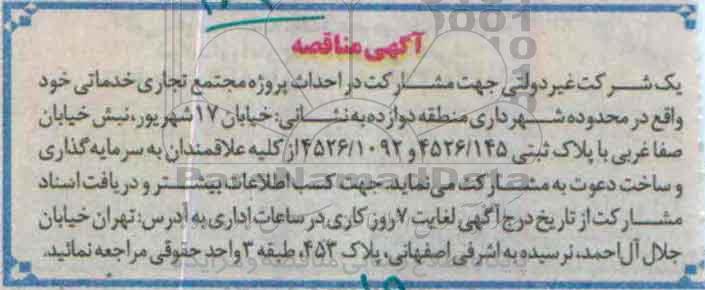 آگهی مناقصه
یک شرکت غیردولتی جهت مشارکت در احداث پروژه مجتمع تجاری خدماتی خود
واقع در محدوده شهرداری منطقه دوازده به نشانی: خیابان ۱۷ شهریور، نبش خیابان
صفا غربی با پلاک ثبتی ۴۵۲۶/۱۴۵ و ۴۵۲۶/۱۰۹۲ از کلیه علاقمندان به سرمایه گذاری
و ساخت دعوت به مشارکت می نماید. جهت کسب اطلاعات بیشتر و دریافت اسناد
مشارکت از تاریخ درج آگهی لغایت ۷ روز کاری در ساعات اداری به آدرس: تهران خیابان
جلال آل احمد، نرسیده به اشرفی اصفهانی، پلاک ۴۵۳، طبقه ۳ واحد حقوقی مراجعه نمائید.
ParsNamadData